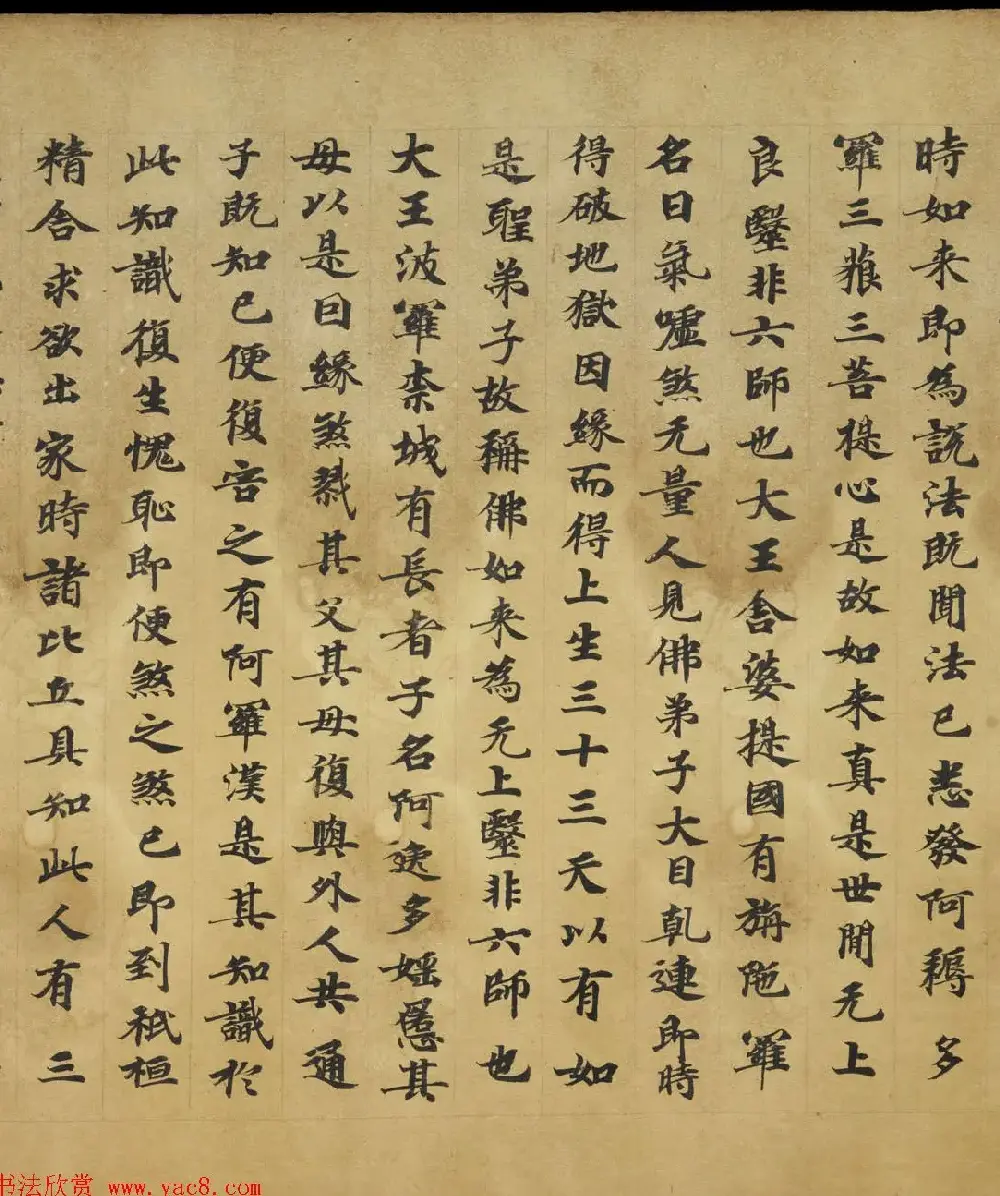 時如来即為說法既聞法已悉發阿耨多
羅三藐三菩提心是故如来真是世間无上
良毉非六師也大王舍婆提國有旃陁羅
名曰氣嘘煞无量人見佛弟子大目乹連即時
得破地獄因緣而得上生三十三天以有如
是聖弟子故稱佛如来為无上毉非六師也
大王波羅柰城有長者子名阿逸多婬慝其
母以是因緣煞戮其父其母復與外人共通
子既知已便復害之有阿羅漢是其知識於
此知識復生愧恥即便煞之煞已即到祇桓
精舍求欲出家時諸比丘具知此人有三
书法欣赏 www.yac8.com